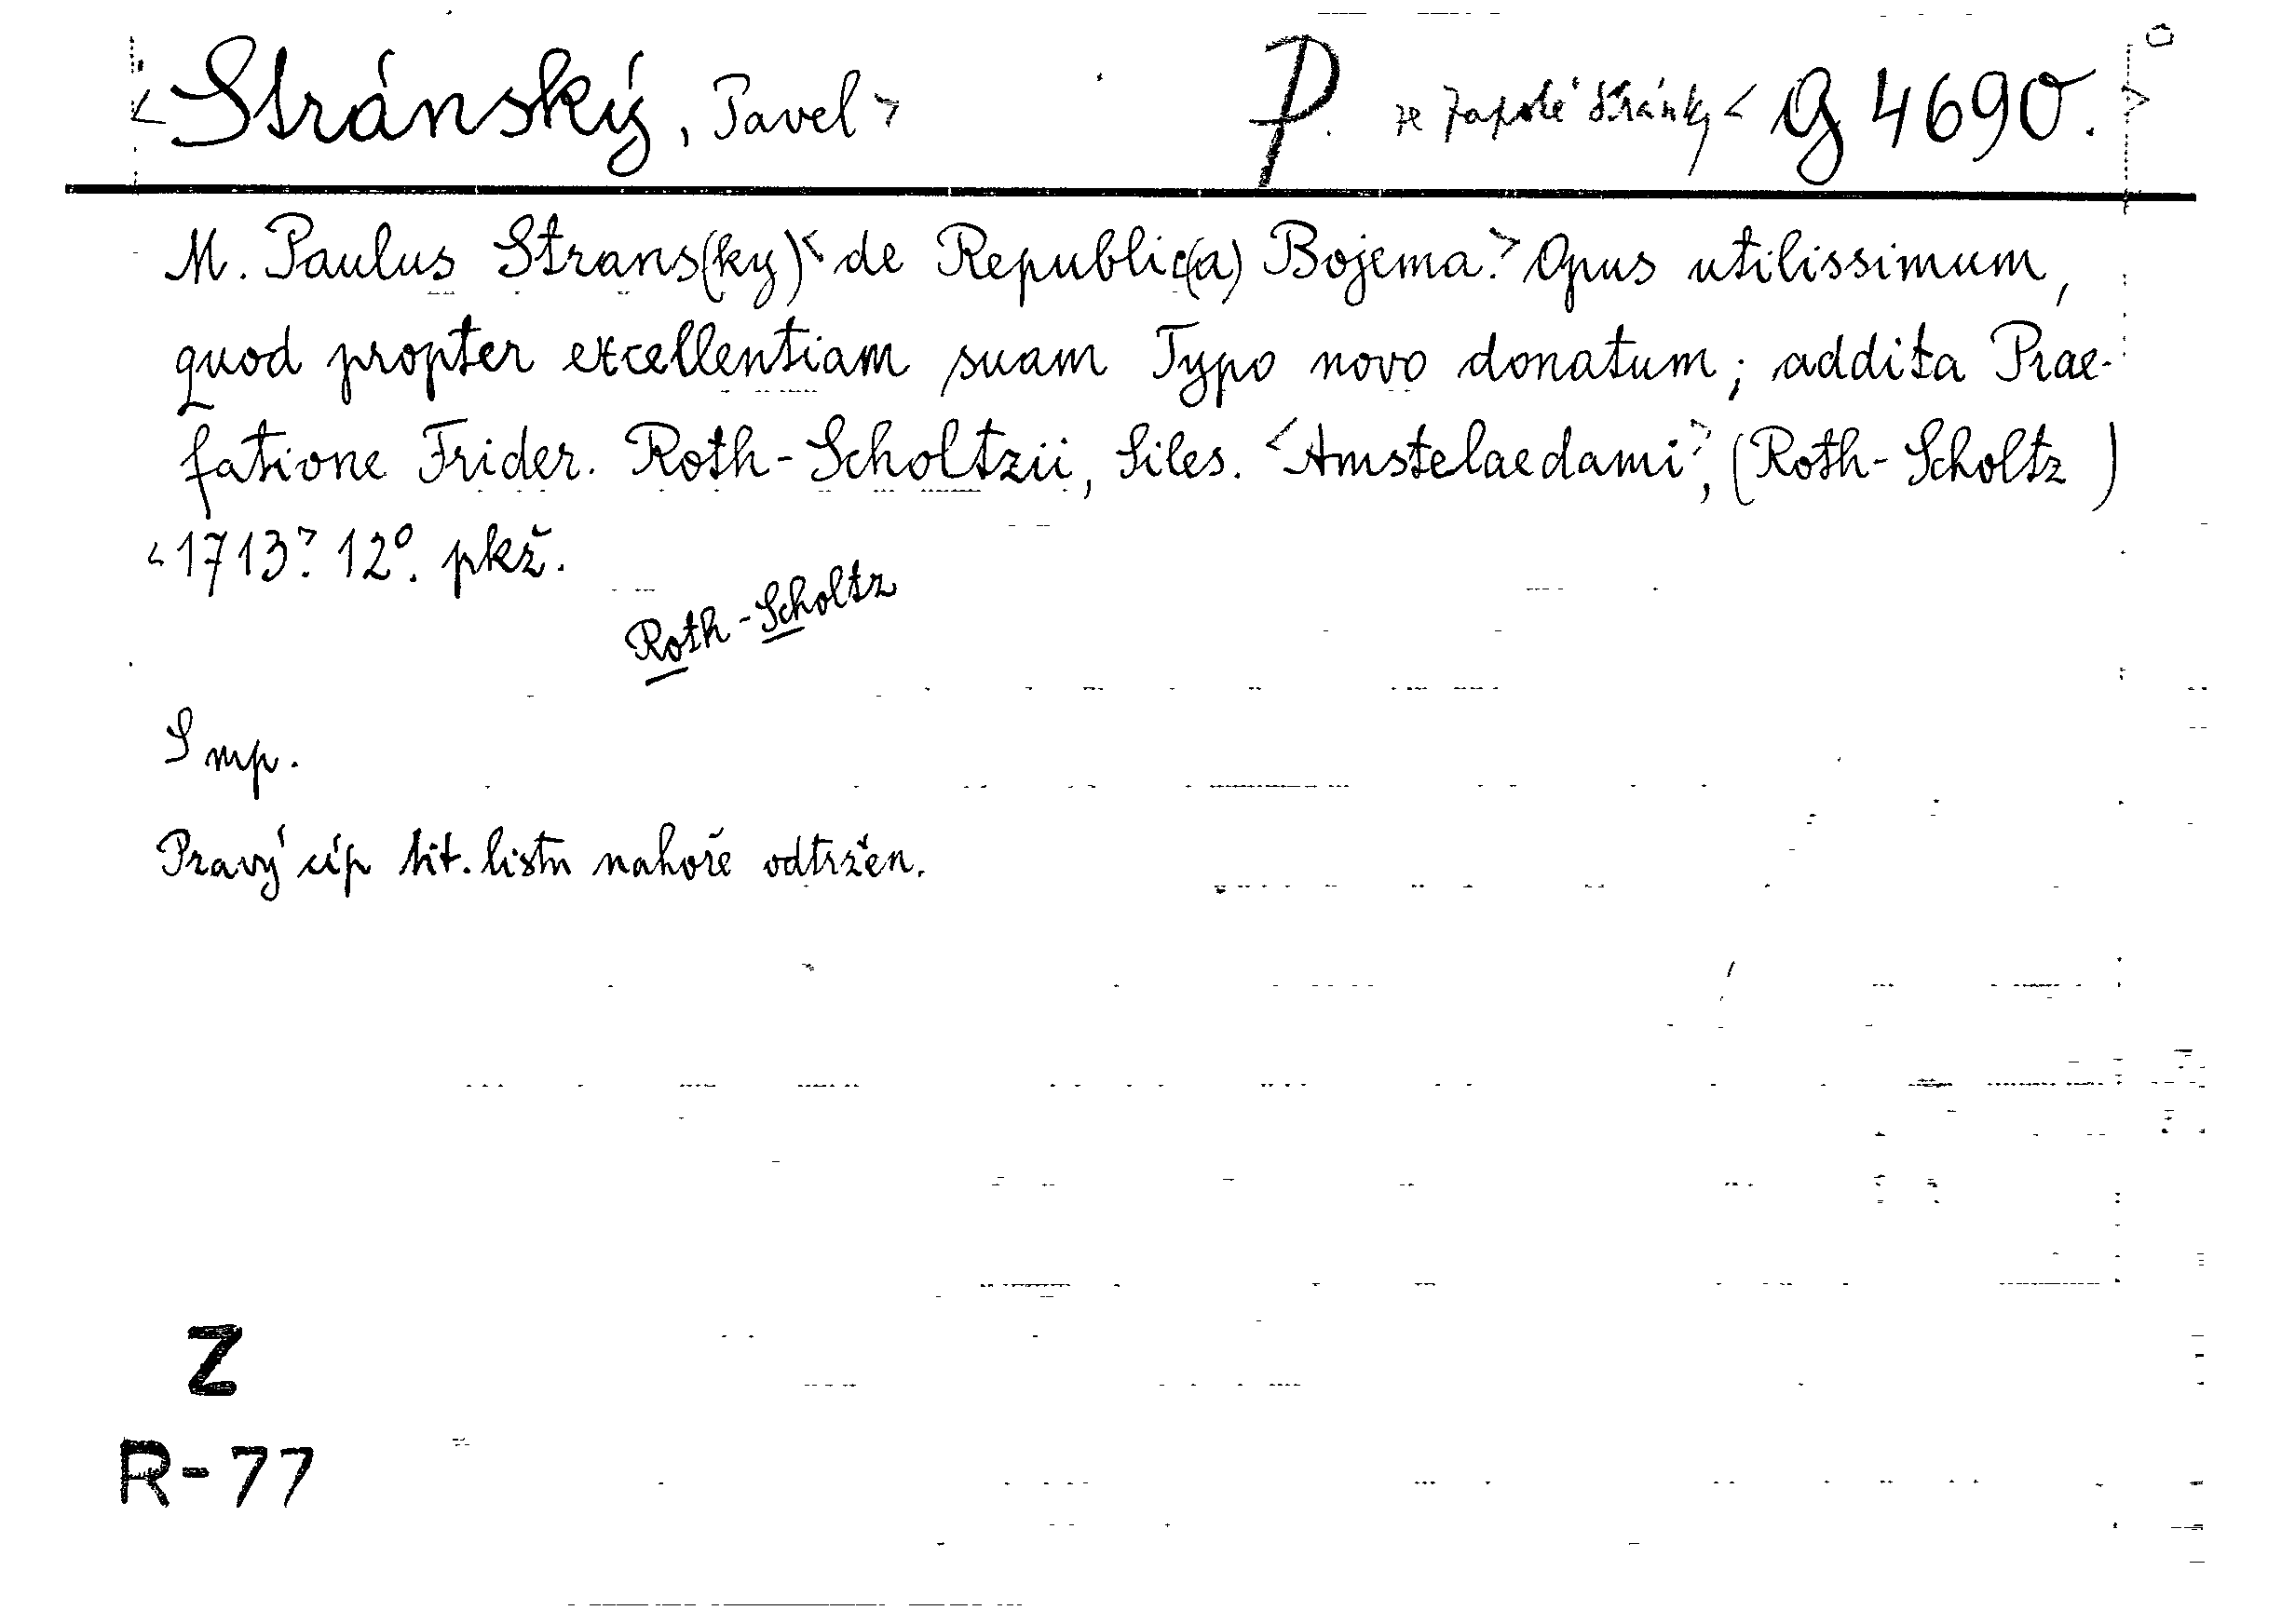 <Stránský, Pavel> P. ze Zapské Stránky <G 4690.>
M. Paulus Strans(ky)< de Republic(a) Bojema.> Opus utilissimum,
quod propter excellentiam suam Typo novo donatum; addita Prae-
fatione Frider. Roth-Scholtzii, Siles. <Amstelaedami>, (Roth-Scholtz)
<1713.> 12°. pkž.
Roth-Scholtz
S mp.
Pravý cíp tit. listu nahoře odtržen.
Z
R-77